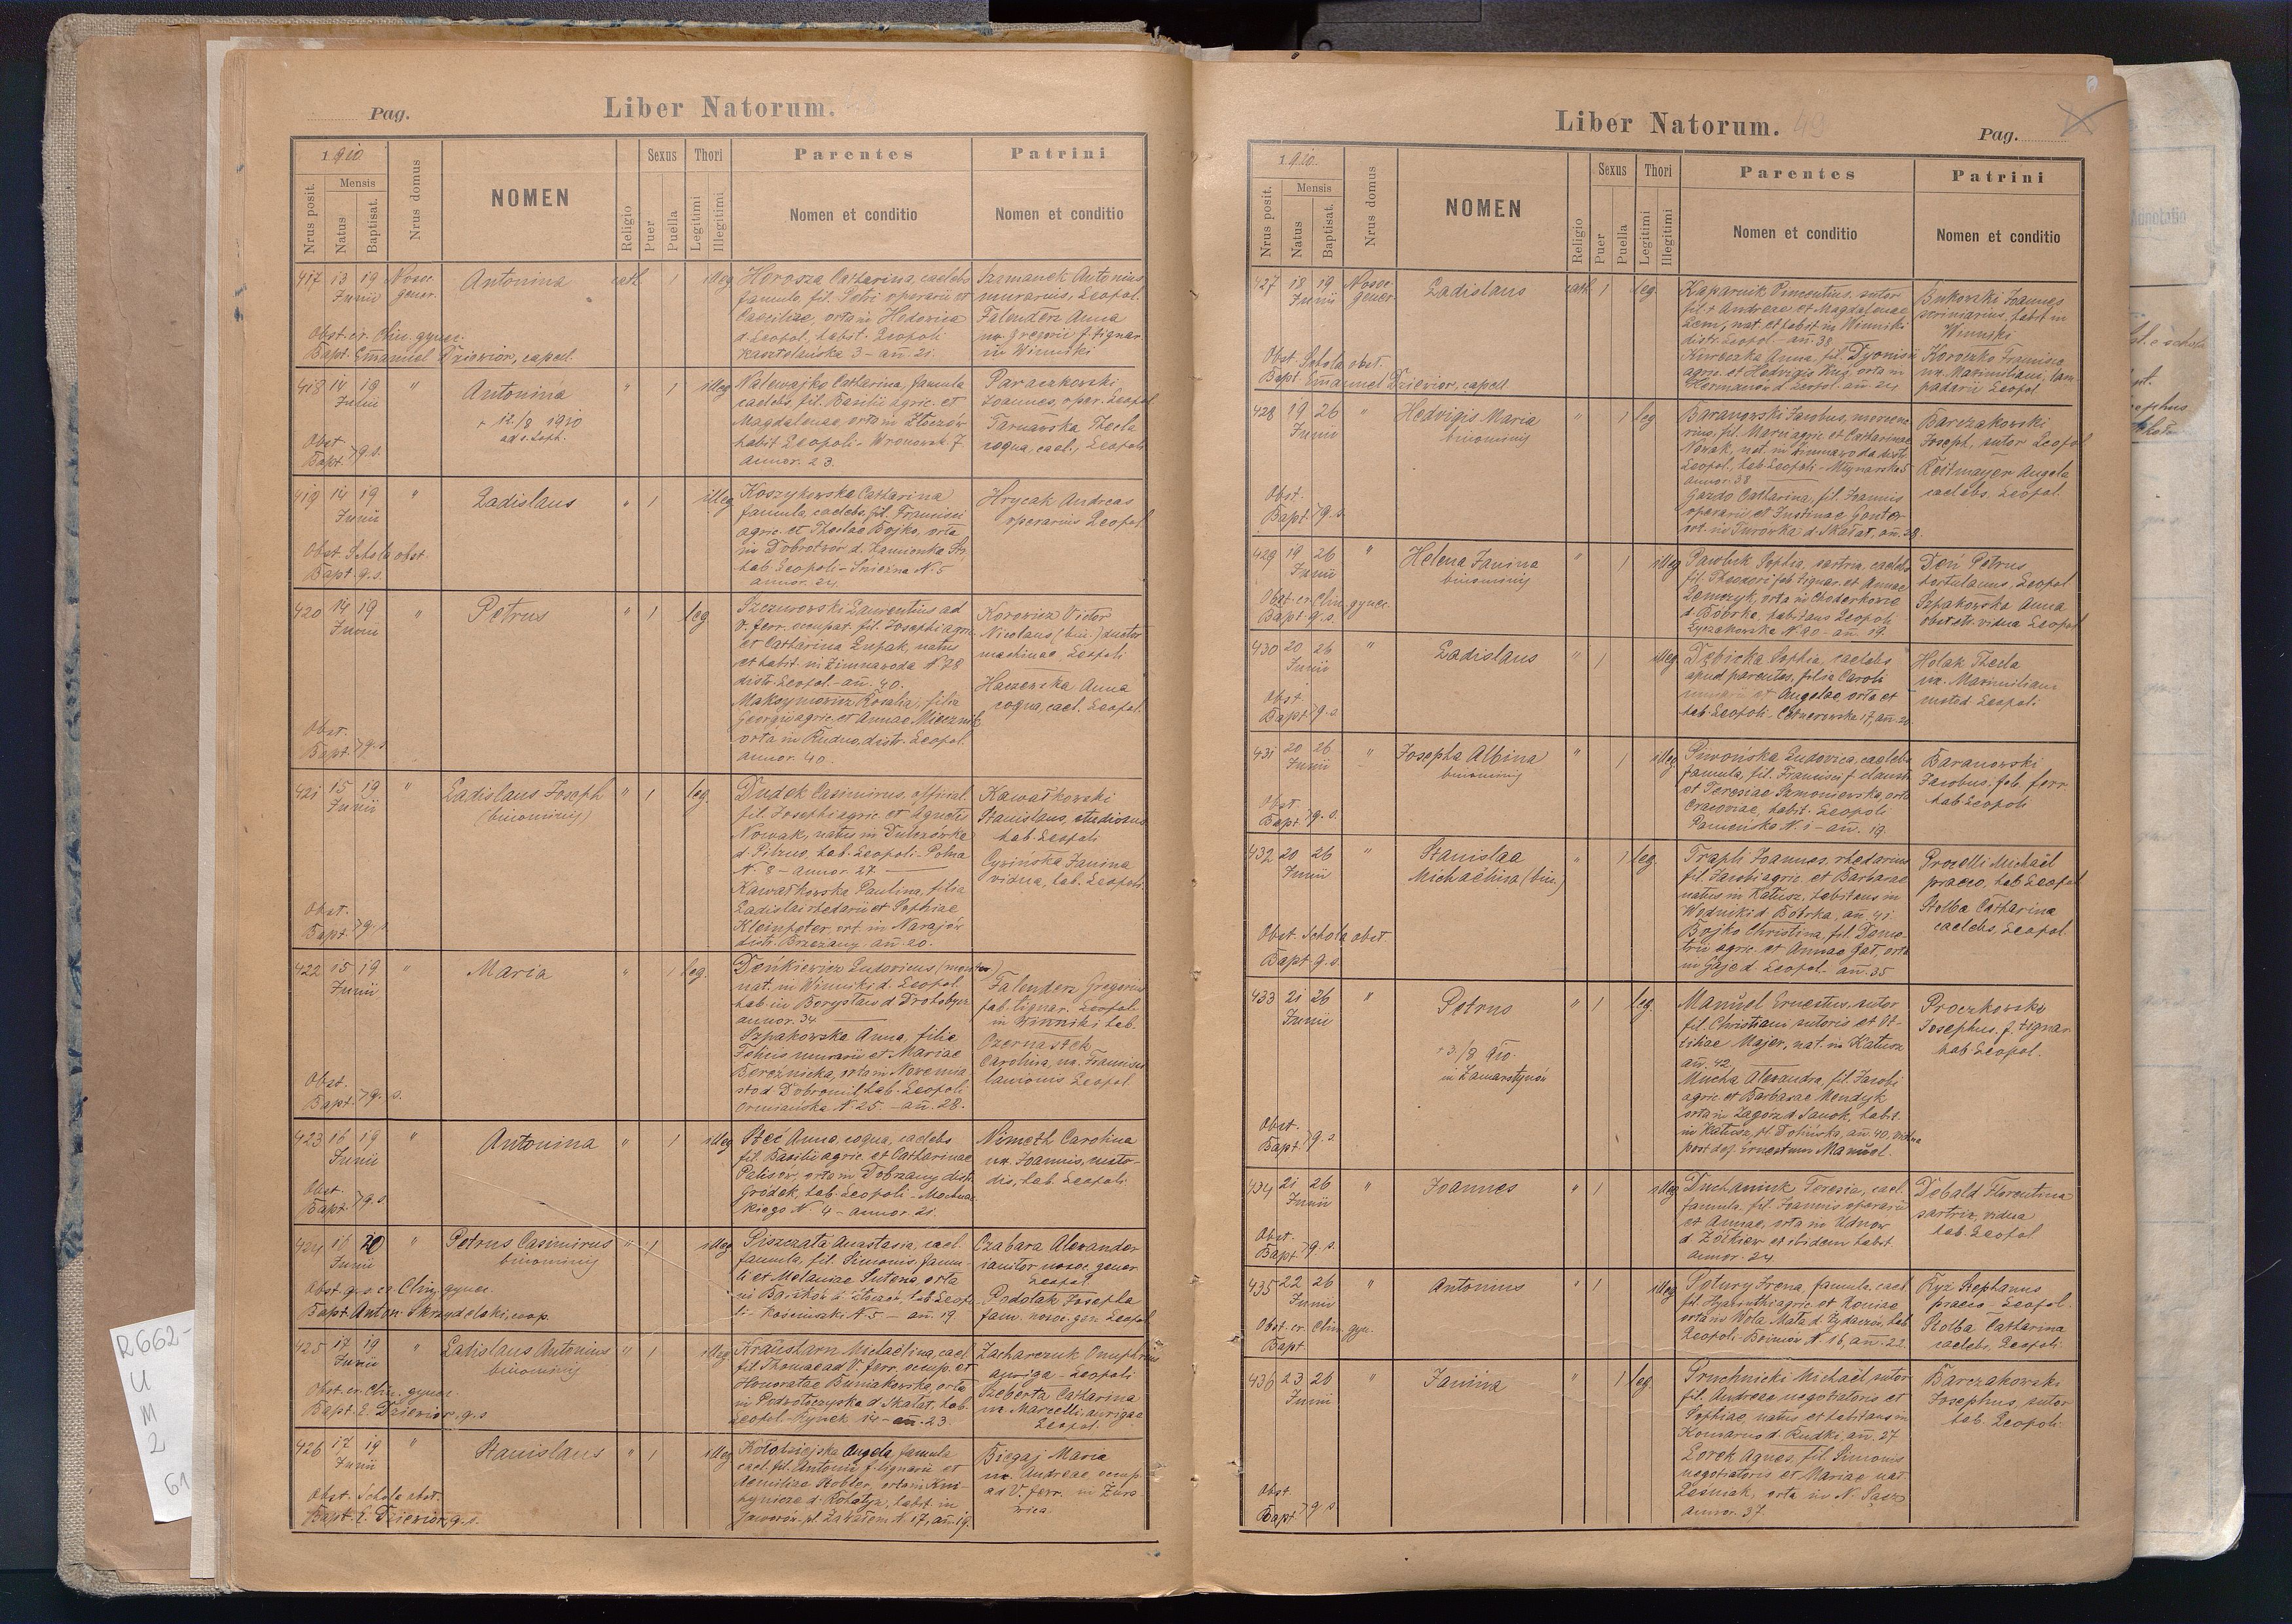 Pag.
Liber Natorum.
1910
Nrus posit.
Mensis
Natus
Baptisat.
Nrus domus
NOMEN
Religio
Sexus
Puer
Puella
Thori
Legtimi
Illegitimi
Parentes
Nomen et conditio
Patrini
Nomen et conditio
417 13 19 Nosoc.
Junii gener.
Antonina
cath. 1 illeg.
Horosza Catharina, caelebs
famula, fil. Petri operarii et
Caeciliae, orta in
d. Leopol, habit. Leopoli
3 - añ. 21.
Szmanek Antonius
murarius, Leopol.
Falendera Anna
ux. Gregorii f. tignar.
in Winniki
Obst. er. Clin. gynec.
Bapt. Emanuel Dziewior, capell.
418 14 19 "
Antonina
+ 12/8 1910
" 1 illeg
Natewajko Catharina, famula
caelebs, fil. Basilii agric. et
Magdalenae, orta in Złoczów
habit Leopoli - Wronowsk. 7
annor. 23.
Joannes, oper. Leopol
Tarnawska Thecla
coqua, cael., Leopoli
Obst.
Bapt. q. s.
419 14 19 "
Junii
Ladislaus
" 1 illeg
Koszykowska Catharina
famula, caelebs, fil. Francisci
agric. et Theclae Bojko, orta
in Dobrotwór d. Kamionka Str.
hab. Leopoli - Śnieżna N. 5
annor. 24.
Hrycak Andreas
operarius Leopol
Obst. Schola obst.
Bapt. q. s.
420 14 19 "
Junii
Petrus
" 1 leg
Szczurowski Laurentius ad
V. ferr. occupat. fil. Josephi agric.
et Catharina Łupak, natus
et habit. in Zimnawoda N 28
distr. Leopol. - añ. 40.
Maksymowicz Rosalia, filia
Georgii agric. et Annae
orta in Rudno, distr. Leopol.
annor. 40.
Korowicz Victor
Nicolaus (bin.) ductor
machinae, Leopoli
Anna
coqua, cael. Leopol.
Obst.
Bapt. q. s.
421 15 19 "
Junii
Ladislaus Joseph
(binominis)
" 1 leg.
Dudek Casimirus, official.
fil. Josephi agric. et Agnetis
Nowak, natus in
d. Pilzno, hab. Leopoli - Polna
N. 8 - annor. 27
Kawałkowska Paulina, filia
Ladislai rhedarii et Sophiae
ort. in Narajów
distr. Brzezany. añ. 20.
Kawałkowski
Stanislaus, studiosus
hab. Leopoli
Janina
vidua, hab. Leopoli.
Obst.
Bapt. q. s.
422 15 19 "
Junii
Maria
" 1 leg.
Deńkiewicz Ludovicus (montor)
nat. in Winniki d. Leopol.
hab. in Borysław d Drohobycz
annor. 34
Szpakowska Anna, filia
Felicis murarii et Mariae
Bereżnicka, orta in Novemia
sto d Dobromil, hab. Leopoli
Ormiańska N 25. - añ. 28.
Falendera Gregorius
fab. tignar. Leopoli
in Winniki hab.
Czernastek
Carolina, ux. Francisci
lanionis Leopol.
Obst.
Bapt. q. s.
423 16 19 "
Junii
Antonina
" 1 illeg
Steć Anna, coqua, caelebs
fil. Basilii agric. et Catharinae
orta in Dobrzany distr.
Gródek, hab. Leopoli - Mochnac-
kiego N. 4 - annor. 21.
Nimeth Carolina
ux. Joannis, custo-
dis, hab. Leopoli
Obst.
Bapt. q. s.
424 16 20 "
Junii
Petrus Casimirus
binominis
" 1 illeg
Piszczata Anastasia, cael.
famula, fil. Simonis, famu-
li et Melaniae orta
hab. Leopo-
li - Kościuszki N. 5 - añ. 19
Czabara Alexander
ianitor nosoc. gener
Leopol.
Podolak Josepha
fam. nosoc. gen Leopol
Obst. q. s. er. Clin. gynec.
Bapt. Anton. Skrzydelski, coop.
425 17 19 "
Junii
Ladislaus Antonius
binominis
" 1 illeg
Michaëlina, cael.
fil. Thomae ad V. ferr. occup. et
Honoratae orta
in Podwołoczyska d. Skałat, hab.
Leopol - Rynek 14 - añ. 23.
Zacharczuk Onuphrius
auriga - Leopoli
Szeberta Catharina
ux. Marcelli, aurigae
Leopol.
Obst. er. Clin. gynec.
Bapt. E. Dziewior, q. s.
426 17 19 "
Junii
Stanislaus
" 1 illeg
Kołodziejska Angela, famula
cael. fil. Antonii f. lignarii et
orta in Kni-
hynicze d. Rohatyn, habit. in
N. 17, añ. 19.
Biegaj Maria
ux. Andreae occup.
ad V. ferr. in Żura-
wica.
Obst. Schola obst.
Bapt. E. Dziewior, q. s.
Liber Natorum. 49
Pag.
1910
Nrus posit.
Mensis
Natus
Baptisat.
Nrus domus
NOMEN
Religio
Sexus
Puer
Puella
Thori
Legitimi
Illegitimi
Parentes
Nomen et conditio
Patrini
Nomen et conditio
427 18 19 Nosoc.
Junii gener
Ladislaus
cath 1 leg.
Kaparnik Vincentius, sutor
fil. + Andreae et Magdalenae
nat. et habit in Winniki
distr. Leopol - añ. 38
Anna, fil. Dyonisii
agric. et Hedvigis orta in
Hermanów d. Leopol. añ 24
Bukowski Joannes
habit in
Winniki
Francisca
ux. Maximiliani, lam-
padarii Leopol
Obst. Schola obst.
Bapt Emanuel Dziewior, capell.
428 19 26 "
Junii
Hedvigis Maria
binominis
" 1 leg
Baranowski Jacobus, mercena-
rius, fil. Marci agric. et Catharinae
Nowak, nat. in Zimnawoda distr.
Leopol., hab. Leopoli - Młynarska 5
annor. 38
Gazdo Catharina, fil. Joannis
operarii et Justinae Gonter
ort. in Turówka d. Skałat, añ. 28.
Barczakowski
Joseph, sutor Leopol
Reitmayer Angela
caelebs. Leopol.
Obst.
Bapt. q. s.
429 19 26 "
Junii
Helena Janina
binominis
" 1 illeg
Pawluk Sophia, sartrix, caelebs
fil. Theodori fab tignar. et Annae
orta in Choderkowce
d. Bóbrka, habitans Leopoli
Łyczakowska N. 90 - añ. 19.
Deń Petrus
hortulanus, Leopol
Szpakowska Anna
obstetr. vidua Leopol
Obst. er. Clin. gynec.
Bapt. q. s.
430 20 26 "
Junii
Ladislaus
" 1 illeg.
Sophia, caelebs
apud parentes, filia Caroli
et Angelae, orta et
hab. Leopoli - Cetnerowska 17, añ. 20
Holak Thecla
ux. Maximiliani
custod. Leopoli
Obst.
Bapt. q. s.
431 20 26 "
Junii
Josepha Albina
binominis
" 1 illeg
Ludovica, caelebs
famula, fil. Francisci f. claustr.
et Teresiae orta
Cracoviae, habit. Leopoli
Panieńska N. 1 - añ. 19.
Baranowski
Jacobus, fab. ferr.
hab Leopoli
Obst.
Bapt. q. s.
432 20 26 "
Junii
Stanislaa
Michaëlina (bin.)
" 1 leg.
Trapli Joannes, rhedarius
fil. Jacobi agric. et Barbarae
natus in Kałusz, habitans in
Wodniki d. Bóbrka, añ. 41.
Bojko Christina, fil. Deme-
trii agric. et Annae orta
in Gaje d. Leopol. - añ. 35
Michaël
praeco, hab Leopol
Stolba Catharina
caelebs, Leopol
Obst. Schola obst.
Bapt. q. s.
433 21 26 "
Junii
Petrus
+ 3/8 910.
in Zamarstynów
" 1 leg.
Manuel Ernestus, sutor
fil. Christiani sutoris et Ot-
tiliae Majer, nat. in Kałusz
añ. 42,
Mucha Alexandra, fil. Jacobi
agric. et Barbarae Mendyk
orta in Zagórz d. Sanok, habit.
in Kałusz, añ 40, vidua
post def. Ernestum Manuel.
Proczkowski
Josephus, f. tignar.
hab. Leopol.
Obst.
Bapt. q. s
434 21 26 "
Junii
Joannes
" 1 illeg
Duchaniuk Teresia, cael.
famula, fil. Joannis operarii
et Annae, orta in Uhnow
d Żółkiew et ibidem habit.
annor. 24
Debald Florentina
sartrix, vidua
hab. Leopol
Obst.
Bapt. q. s.
435 22 26 "
Junii
Antonius
" 1 illeg
Potury Irena, famula, cael
fil. Hyacinthi agric. et Xeniae
orta in Wola Mała d. Żydaczów, hab
Leopoli - Boimów N. 16, añ. 22.
Ryż Stephanus
praeco - Leopol.
Stolba Catharina
caelebs, Leopoli
Obst. er. Clin. gyn.
Bapt.
436 23 26 "
Junii
Janina
" 1 leg.
Pruchnicki Michaël, sutor
fil. Andreae negotiatoris et
Sophiae, natus et habitans in
Komarno d. Rudki, añ. 27
Lorek Agnes, fil. Simonis
negotiatoris et Mariae nat.
Leśniak, orta in N. Sącz
annor. 37
Barczakowski
Josephus, sutor
hab. Leopoli
Obst.
Bapt. q. s
R662-
U
M
2
61